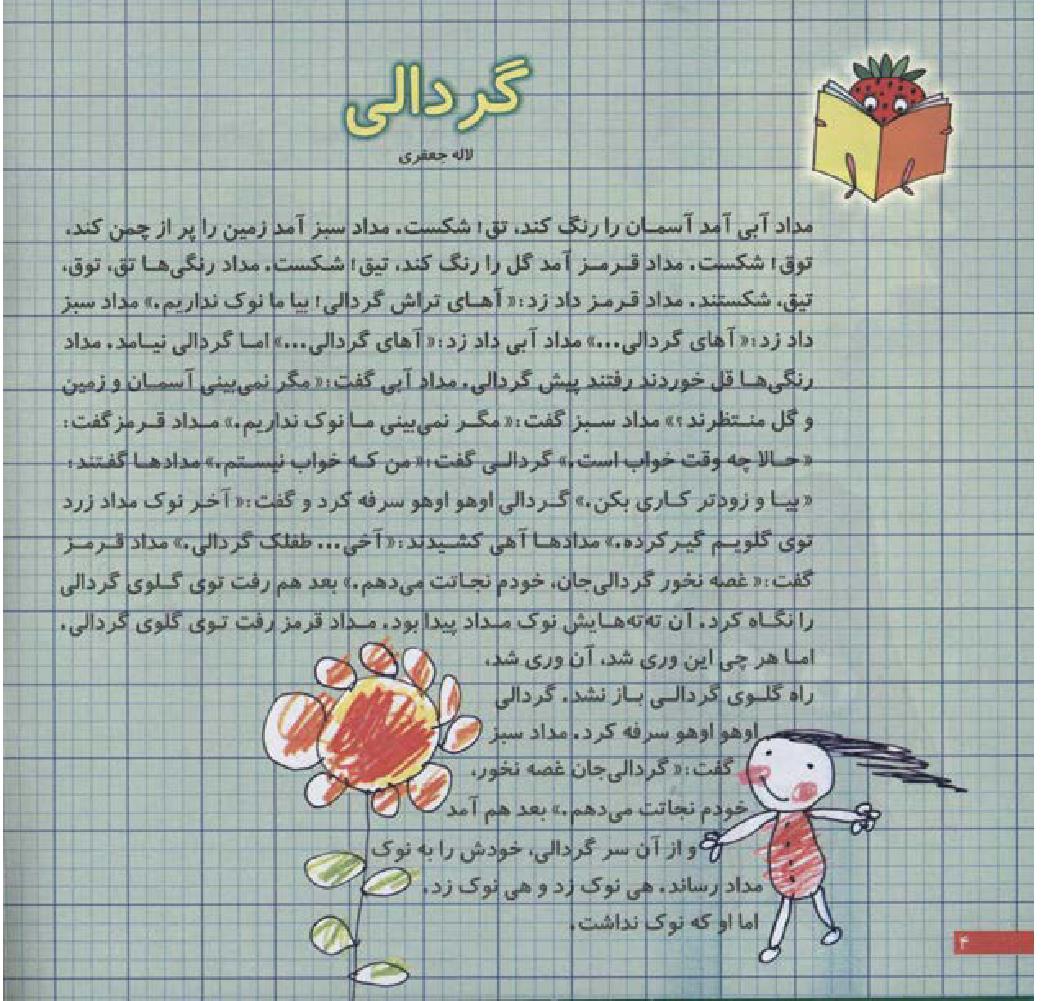 گردالی
لاله جعفری
مداد آبی آمد آسمان را رنگ کند، تق! شکست. مداد سبز آمد زمین را پر از چمن کند،
توق! شکست. مداد قرمز آمد گل را رنگ کند، تیق! شکست. مداد رنگی‌ها تق، توق،
تیق، شکستند. مداد قرمز داد زد: «آهای تراش گردالی! بیا ما نوک نداریم.» مداد سبز
داد زد: «آهای گردالی...» مداد آبی داد زد: «آهای گردالی...» اما گردالی نیامد. مداد
رنگی‌ها قل خوردند رفتند پیش گردالی. مداد آبی گفت: «مگر نمی‌بینی آسمان و زمین
و گل منتظرند؟» مداد سبز گفت: «مگر نمی‌بینی ما نوک نداریم.» مداد قرمز گفت:
«حالا چه وقت خواب است.» گردالی گفت: «من که خواب نیستم.» مدادها گفتند:
«بیا و زودتر کاری بکن.» گردالی اوهو اوهو سرفه کرد و گفت: «آخر نوک مداد زرد
توی گلویم گیر کرده.» مدادها آهی کشیدند: «آخی... طفلک گردالی.» مداد قرمز
گفت: «غصه نخور گردالی‌جان، خودم نجاتت می‌دهم.» بعد هم رفت توی گلوی گردالی
را نگاه کرد. آن ته‌ته‌هایش نوک مداد پیدا بود. مداد قرمز رفت توی گلوی گردالی.
اما هر چی این وری شد، آن وری شد،
راه گلوی گردالی باز نشد. گردالی
اوهو اوهو سرفه کرد. مداد سبز
گفت: «گردالی‌جان غصه نخور،
خودم نجاتت می‌دهم.» بعد هم آمد
و از آن سر گردالی، خودش را به نوک
مداد رساند. هی نوک زد و هی نوک زد.
اما او که نوک نداشت.
۴